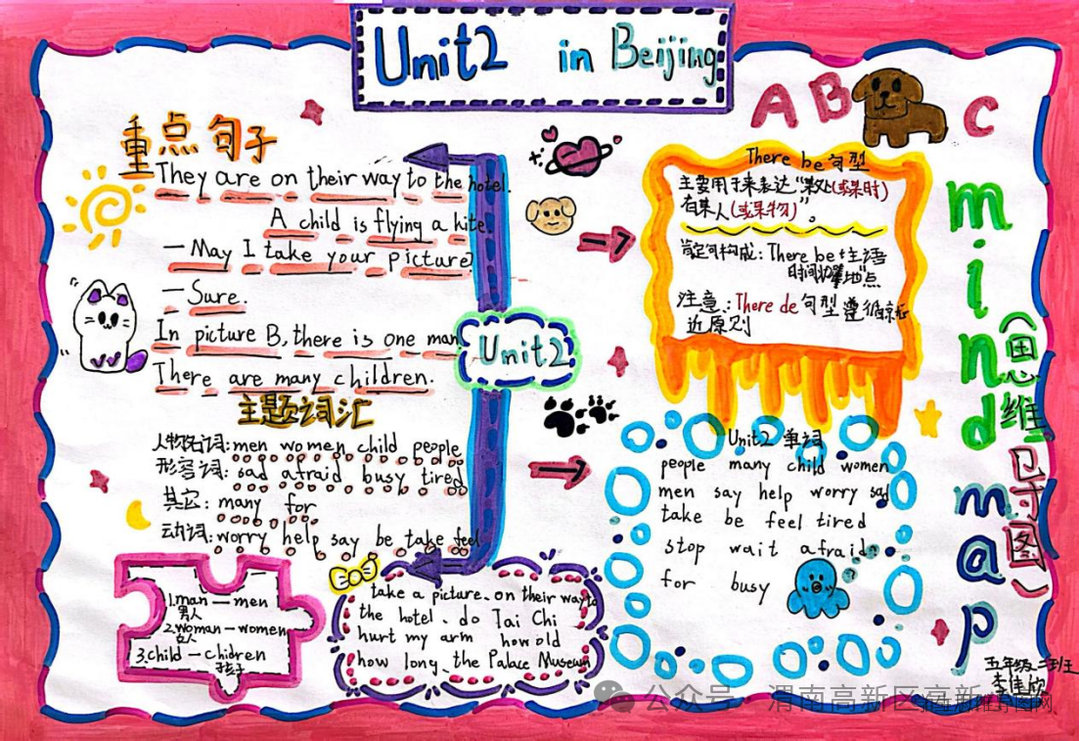 Unit2 in Beijing
A B C
重点句子
They are on their way to the hotel.
A child is flying a kite.
—May I take your picture?
—Sure.
In picture B, there is one man
There are many children.
主题词汇
人物名词:men women child people
形容词:sad afraid busy tired
其它:many for
动词:worry help say be take feel
1.man—men
男人
2.woman—women
女人
3.child—chidren
孩子
take a picture、on their way to
the hotel、do Tai Chi
hurt my arm how old
how long、the Palace Museum
Unit2
There be 句型
主要用于来表达“某处(或某时)
有某人(或某物)”。
肯定句构成:There be+主语
地点
注意:There de句型遵循就
近原则
Unit2 单词
people many child women
men say help worry sad
take be feel tired
stop wait afraid
for busy
mind map
(思维导图)
五年级二班
李佳欣
公众号·渭南高新区高新